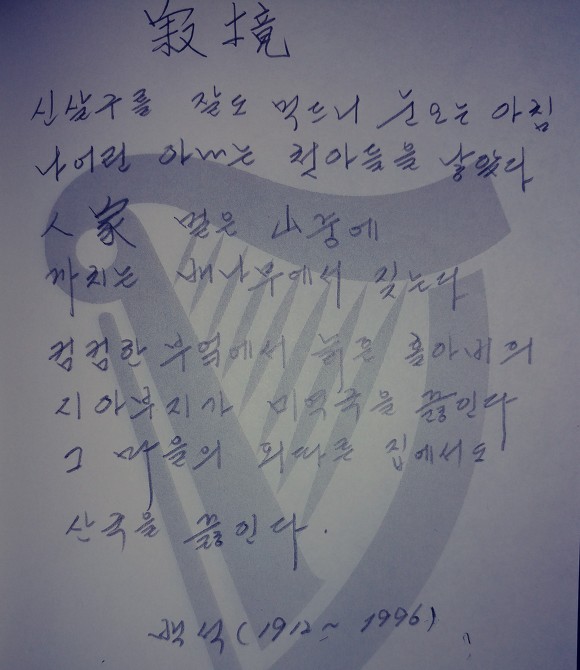 寂境
신살구를 잘도 먹드니 눈오는 아침
나어린 아내는 첫아들을 낳았다
人家 멀은 山중에
까치는 배나무에서 짖는다
컴컴한 부엌에서 늙은 홀아비의
시아부지가 미역국을 끓인다
그 마을의 외따른 집에서도
산국을 끓인다.
백석(1912~1996)